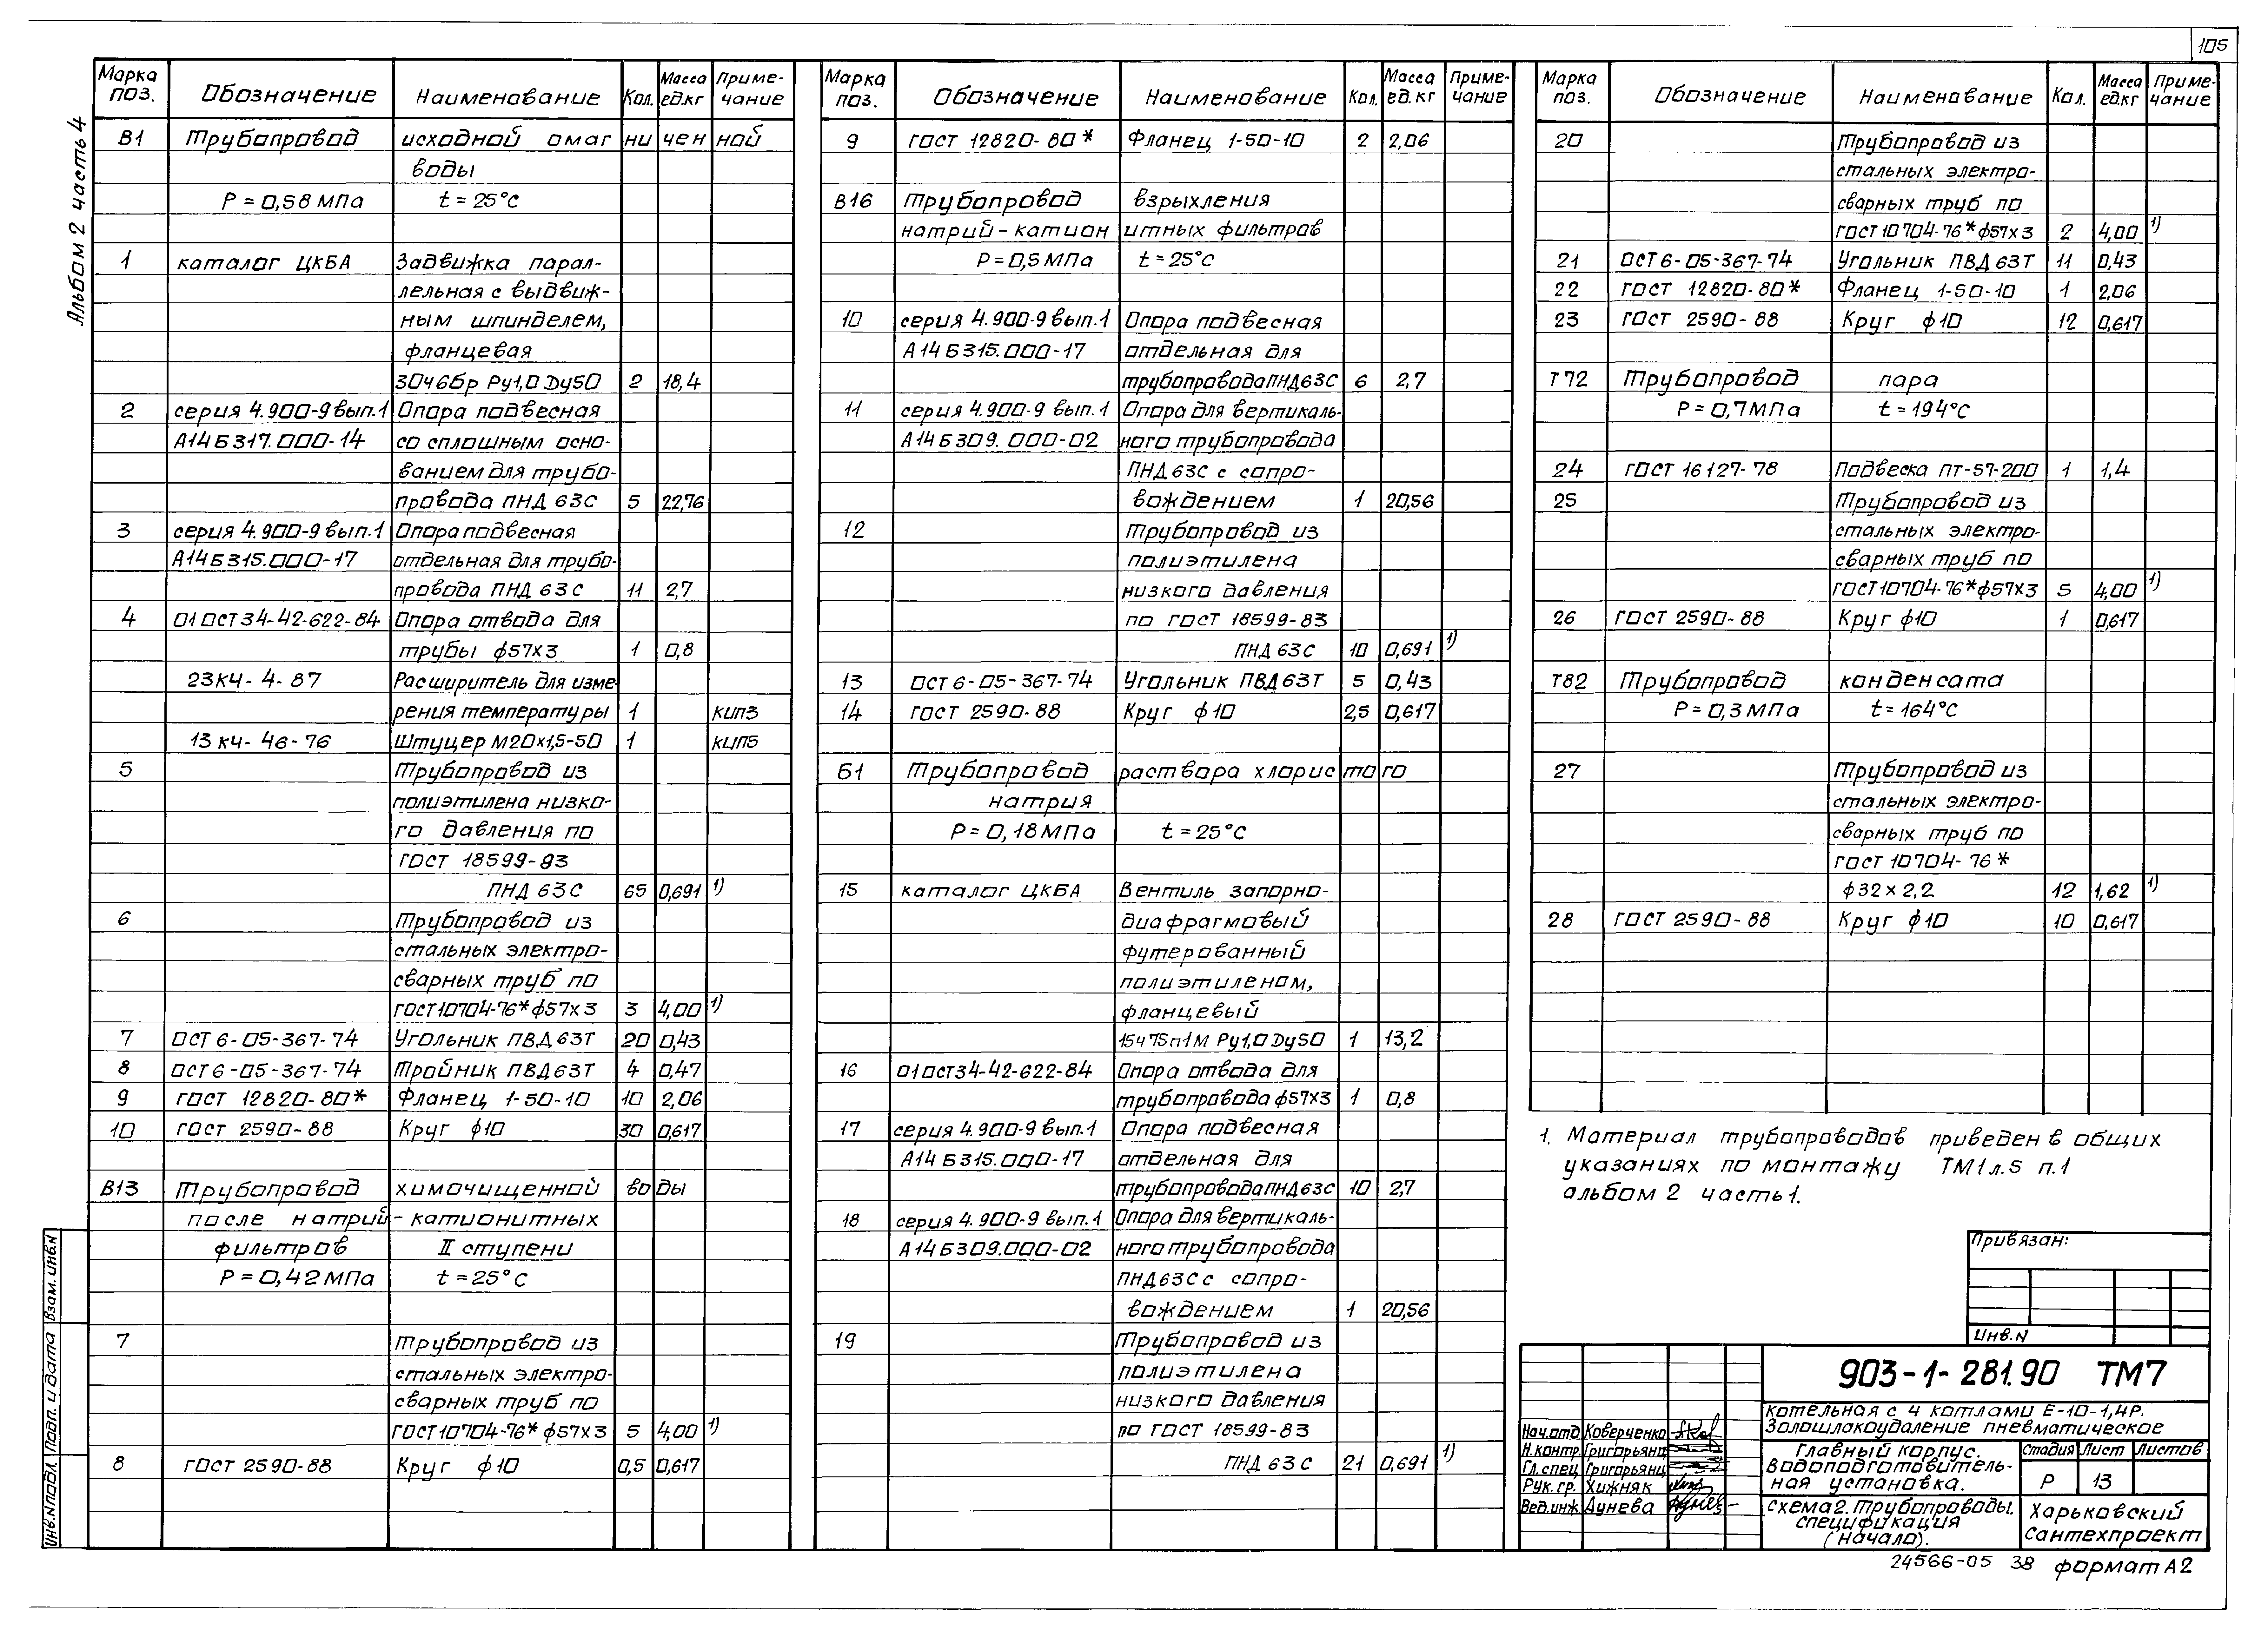 105
Альбом 2 часть 4
Марка поз. Обозначение Наименование Кол. Масса ед.кг Приме-чание
В1 Трубопровод исходной омагниченной
воды
Р = 0,58 МПа t = 25°С
1 каталог ЦКБА Задвижка парал-
лельная с выдвиж-
ным шпинделем,
фланцевая
30ч6бр Ру1,0 Ду50 2 18,4
2 серия 4.900-9 вып.1 Опора подвесная
А14Б317.000-14 со сплошным осно-
ванием для трубо-
провода ПНД 63С 5 22,76
3 серия 4.900-9 вып.1 Опора подвесная
А14Б315.000-17 отдельная для трубо-
провода ПНД 63С 11 2,7
4 01 ОСТ34-42-622-84 Опора отвода для
трубы ф57х3 1 0,8
23КЧ-4-87 Расширитель для изме
рения температуры 1 КИП3
13 КЧ-46-76 Штуцер М20х1,5-50 1 КИП5
5 Трубопровод из
полиэтилена низко-
го давления по
ГОСТ 18599-93
ПНД 63С 65 0,691 1)
6 Трубопровод из
стальных электро-
сварных труб по
ГОСТ10704-76* ф57х3 3 4,00 1)
7 ОСТ 6-05-367-74 Угольник ПВД 63Т 20 0,43
8 ОСТ 6-05-367-74 Тройник ПВД 63Т 4 0,47
9 ГОСТ 12820-80* Фланец 1-50-10 10 2,06
10 ГОСТ 2590-88 Круг ф10 30 0,617
В13 Трубопровод химочищенной воды
после натрий-катионитных
фильтров II ступени
Р = 0,42 МПа t = 25°С
7 Трубопровод из
стальных электро-
сварных труб по
ГОСТ10704-76* ф57х3 5 4,00 1)
8 ГОСТ 2590-88 Круг ф10 0,5 0,617
Марка поз. Обозначение Наименование Кол. Масса ед.кг Приме-чание
9 ГОСТ 12820-80* Фланец 1-50-10 2 2,06
В16 Трубопровод взрыхления
натрий-катионитных фильтров
Р = 0,5 МПа t = 25°С
10 серия 4.900-9 вып.1 Опора подвесная
А14Б315.000-17 отдельная для
трубопровода ПНД63С 6 2,7
11 серия 4.900-9 вып.1 Опора для вертикаль-
А14Б309.000-02 ного трубопровода
ПНД 63С с сопро-
вождением 1 20,56
12 Трубопровод из
полиэтилена
низкого давления
по ГОСТ 18599-83
ПНД 63С 10 0,691 1)
13 ОСТ 6-05-367-74 Угольник ПВД 63Т 5 0,43
14 ГОСТ 2590-88 Круг ф10 2,5 0,617
Б1 Трубопровод раствора хлористого
натрия
Р = 0,18 МПа t = 25°С
15 каталог ЦКБА Вентиль запорно-
диафрагмовый
футерованный
полиэтиленом,
фланцевый
15ч75п1М Ру1,0 Ду50 1 13,2
16 01ОСТ34-42-622-84 Опора отвода для
трубопровода ф57х3 1 0,8
17 серия 4.900-9 вып.1 Опора подвесная
А14Б315.000-17 отдельная для
трубопровода ПНД63С 10 2,7
18 серия 4.900-9 вып.1 Опора для вертикаль-
А14Б309.000-02 ного трубопровода
ПНД63С с сопро-
вождением 1 20,56
19 Трубопровод из
полиэтилена
низкого давления
по ГОСТ 18599-83
ПНД 63С 21 0,691 1)
Марка поз. Обозначение Наименование Кол. Масса ед.кг Приме-чание
20 Трубопровод из
стальных электро-
сварных труб по
ГОСТ10704-76* ф57х3 2 4,00 1)
21 ОСТ 6-05-367-74 Угольник ПВД 63Т 11 0,43
22 ГОСТ 12820-80* Фланец 1-50-10 1 2,06
23 ГОСТ 2590-88 Круг ф10 12 0,617
Т72 Трубопровод пара
Р = 0,7 МПа t = 194°С
24 ГОСТ 16127-78 Подвеска ПТ-57-200 1 1,4
25 Трубопровод из
стальных электро-
сварных труб по
ГОСТ10704-76* ф57х3 5 4,00 1)
26 ГОСТ 2590-88 Круг ф10 1 0,617
Т82 Трубопровод конденсата
Р = 0,3 МПа t = 164°С
27 Трубопровод из
стальных электро-
сварных труб по
ГОСТ 10704-76*
ф32 х 2,2 12 1,62 1)
28 ГОСТ 2590-88 Круг ф10 10 0,617
1. Материал трубопроводов приведен в общих
указаниях по монтажу ТМ1 л.5 п.1
альбом 2 часть 1.
Привязан:
Инв.N
903-1-281.90 ТМ7
Котельная с 4 котлами Е-10-1,4Р.
Золошлакоудаление пневматическое
Нач.отд Коверченко
Н.контр. Григорьянц
Гл.спец Григорьянц
Рук.гр. Хижняк
Вед.инж. Дунева
Главный корпус.
Водоподготовитель-
ная установка.
Стадия Лист Листов
Р 13
Схема 2. Трубопроводы.
спецификация
(начало).
Харьковский
Сантехпроект
24566-05 38 формат А2
Инв.N подл. Подп. и дата Взам. инв.N